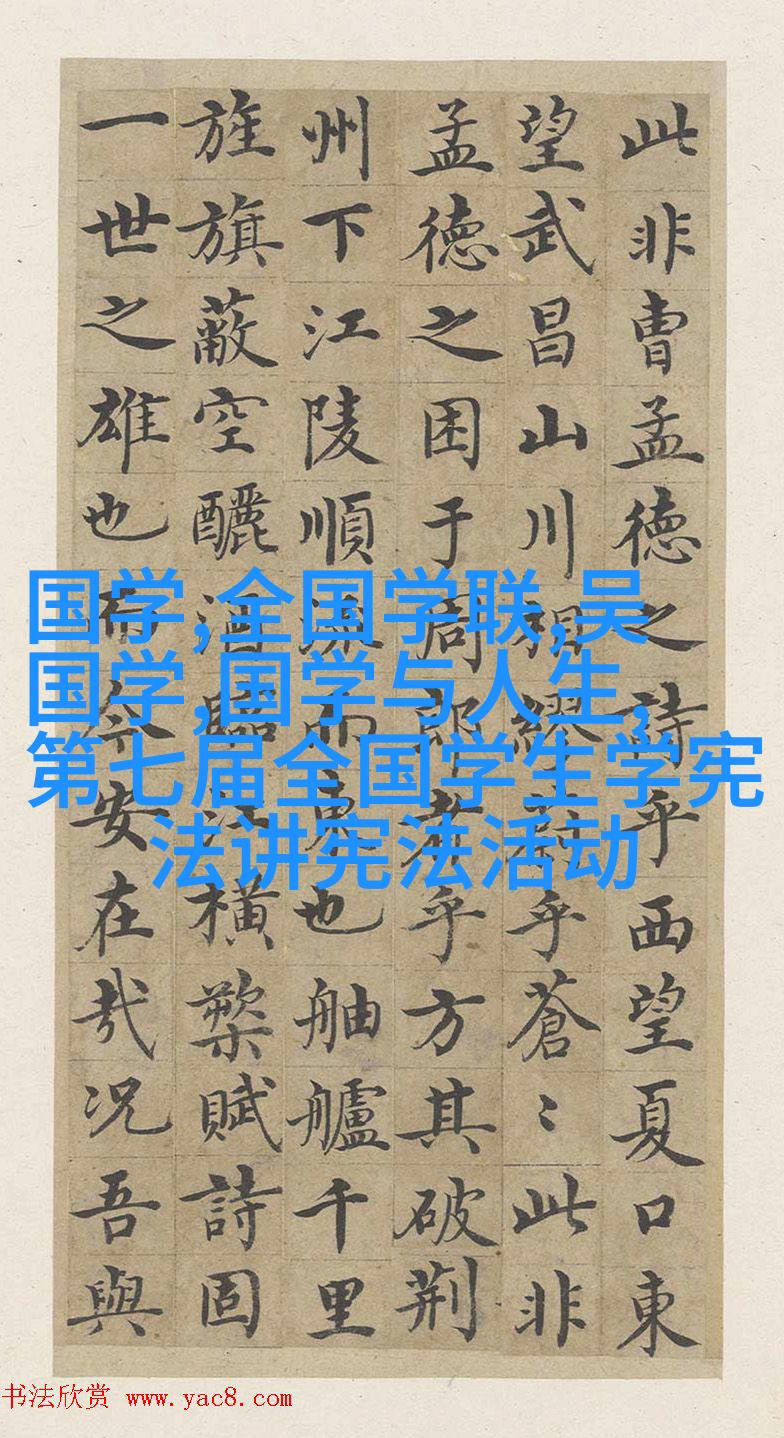 此非曹孟德之詩乎西望夏口東
望武昌山川相繆乎蒼〻此非
孟德之困于周郎者乎方其破荊
州下江陵順流而東也舳艫千里
旌旗蔽空釃酒臨江橫槊賦詩固
一世之雄也而今安在哉況吾與
国学,全国学联,吴
国学,国学与人生,
第七届全国学生学宪
法讲宪法活动
书法欣赏 www.yac8.com